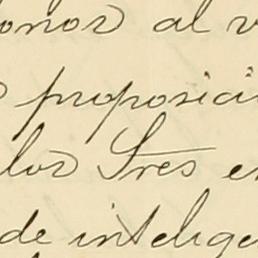 al
proposici
los Sres e
de intelige